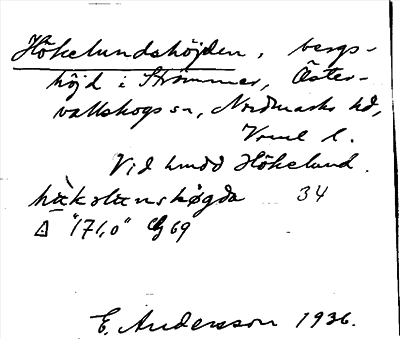 Hökelundshöjden, bergs-
höjd i Strömmer, Öster-
vallskogs sn, Nordmarks hd,
Vrml l.
Vid hmdd Hökelund.
34
△ "171,0" 69
E. Andersson 1936.